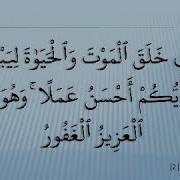 خَلَقَ ٱلْمَوْتَ وَٱلْحَيَوٰةَ
أَحْسَنُ عَمَلًا ۚ وَهُوَ
ٱلْعَزِيزُ ٱلْغَفُورُ